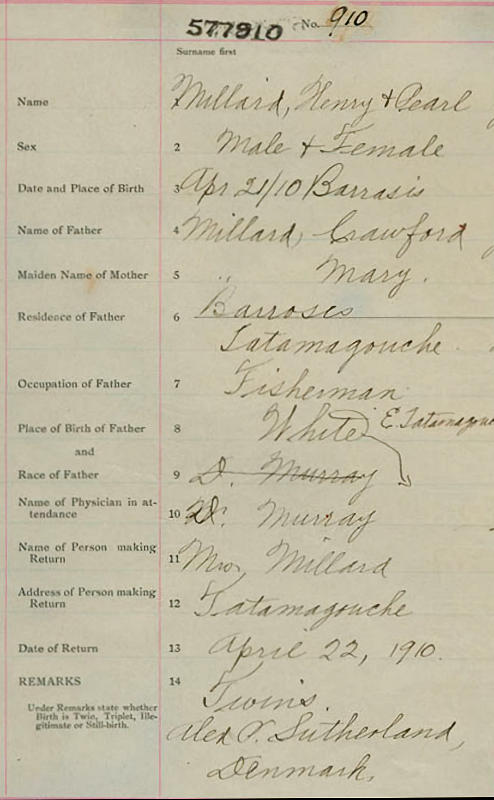 577910 No. 910
Surname first
Name Millard, Henry & Pearl
Sex 2 Male & Female
Date and Place of Birth 3 Apr 21/10 Barrasis
Name of Father 4 Millard, Crawford
Maiden Name of Mother 5 " Mary.
Residence of Father 6 Barroses
Tatamagouche
Occupation of Father 7 Fisherman
Place of Birth of Father 8 White E. Tatamagou
and
Race of Father 9 D. Murray
Name of Physician in at-
tendance 10 D. Murray
Name of Person making
Return 11 Mrs. Millard
Address of Person making
Return 12 Tatamagouche
Date of Return 13 April 22, 1910.
REMARKS 14
Twins.
Under Remarks state whether
Birth is Twin, Triplet, Ille-
gitimate or Still-birth.
Alex Sutherland,
Denmark.